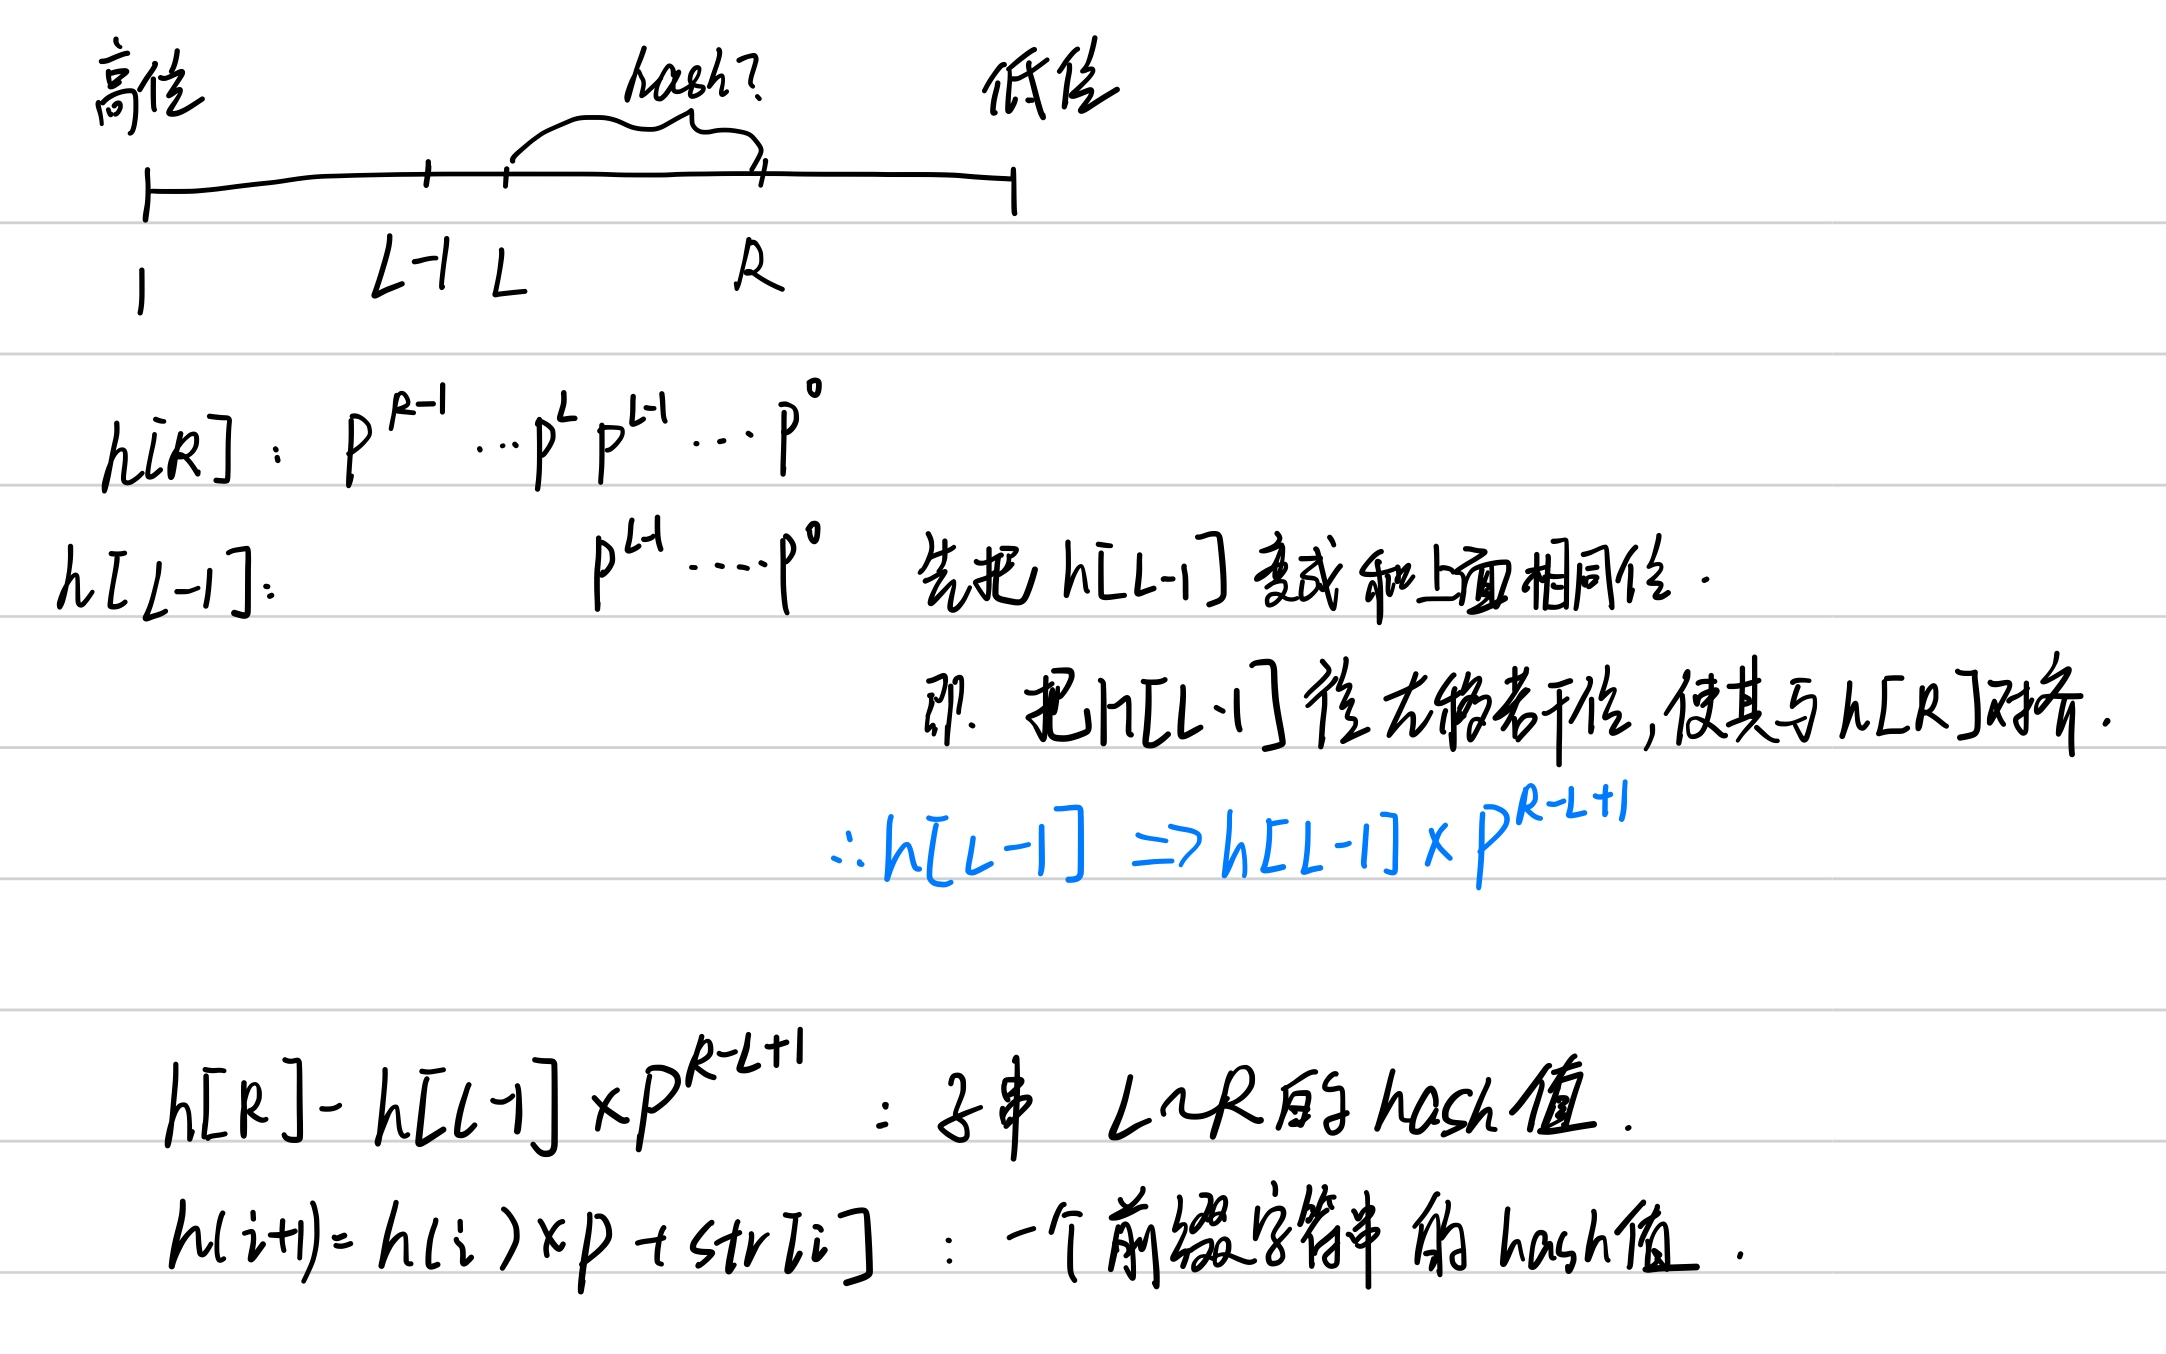 高位 hash? 低位
1 L-1 L R
h[R]: P^{R-1} ... P^L P^{L-1} ... P^0
h[L-1]: P^{L-1} ..... P^0 先把 h[L-1] 变成和上面相同位.
即. 把h[L-1]往左移若干位,使其与h[R]对齐.
∴h[L-1] => h[L-1] × P^{R-L+1}
h[R] - h[L-1] × P^{R-L+1} : 子串 L~R的 hash值.
h(i+1) = h(i) × p + str[i] : 一个前缀字符串的hash值.